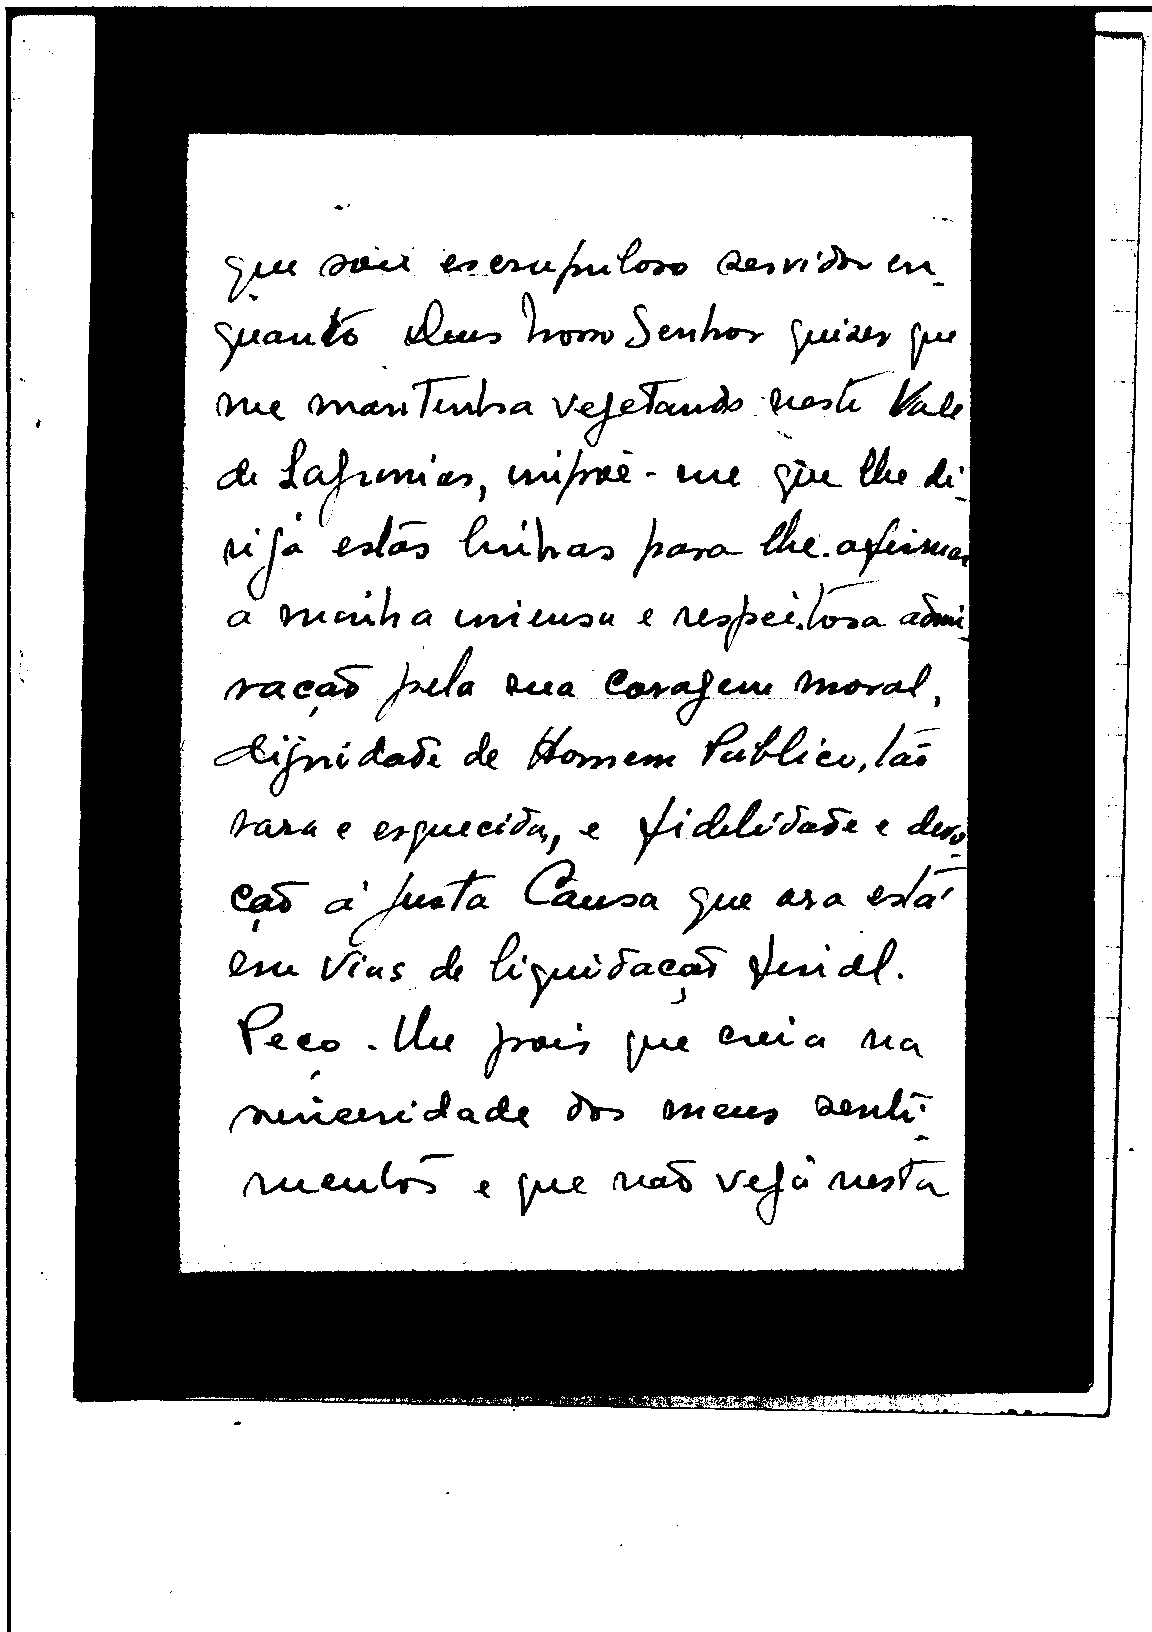 que sou escrupuloso servidor en-
quanto Deus Nosso Senhor quizer que
me mantenha vegetando neste Vale
de Lagrimas, impõe-me que lhe di-
rija estas linhas para lhe afirmar
a minha imensa e respeitosa admi-
ração pela sua coragem moral,
dignidade de Homem Publico, tão
rara e esquecida, e fidelidade e devo-
ção á justa Causa que ora está
em vias de liquidação final.
Peço-lhe pois que creia na
sinceridade dos meus senti-
mentos e que não veja nesta